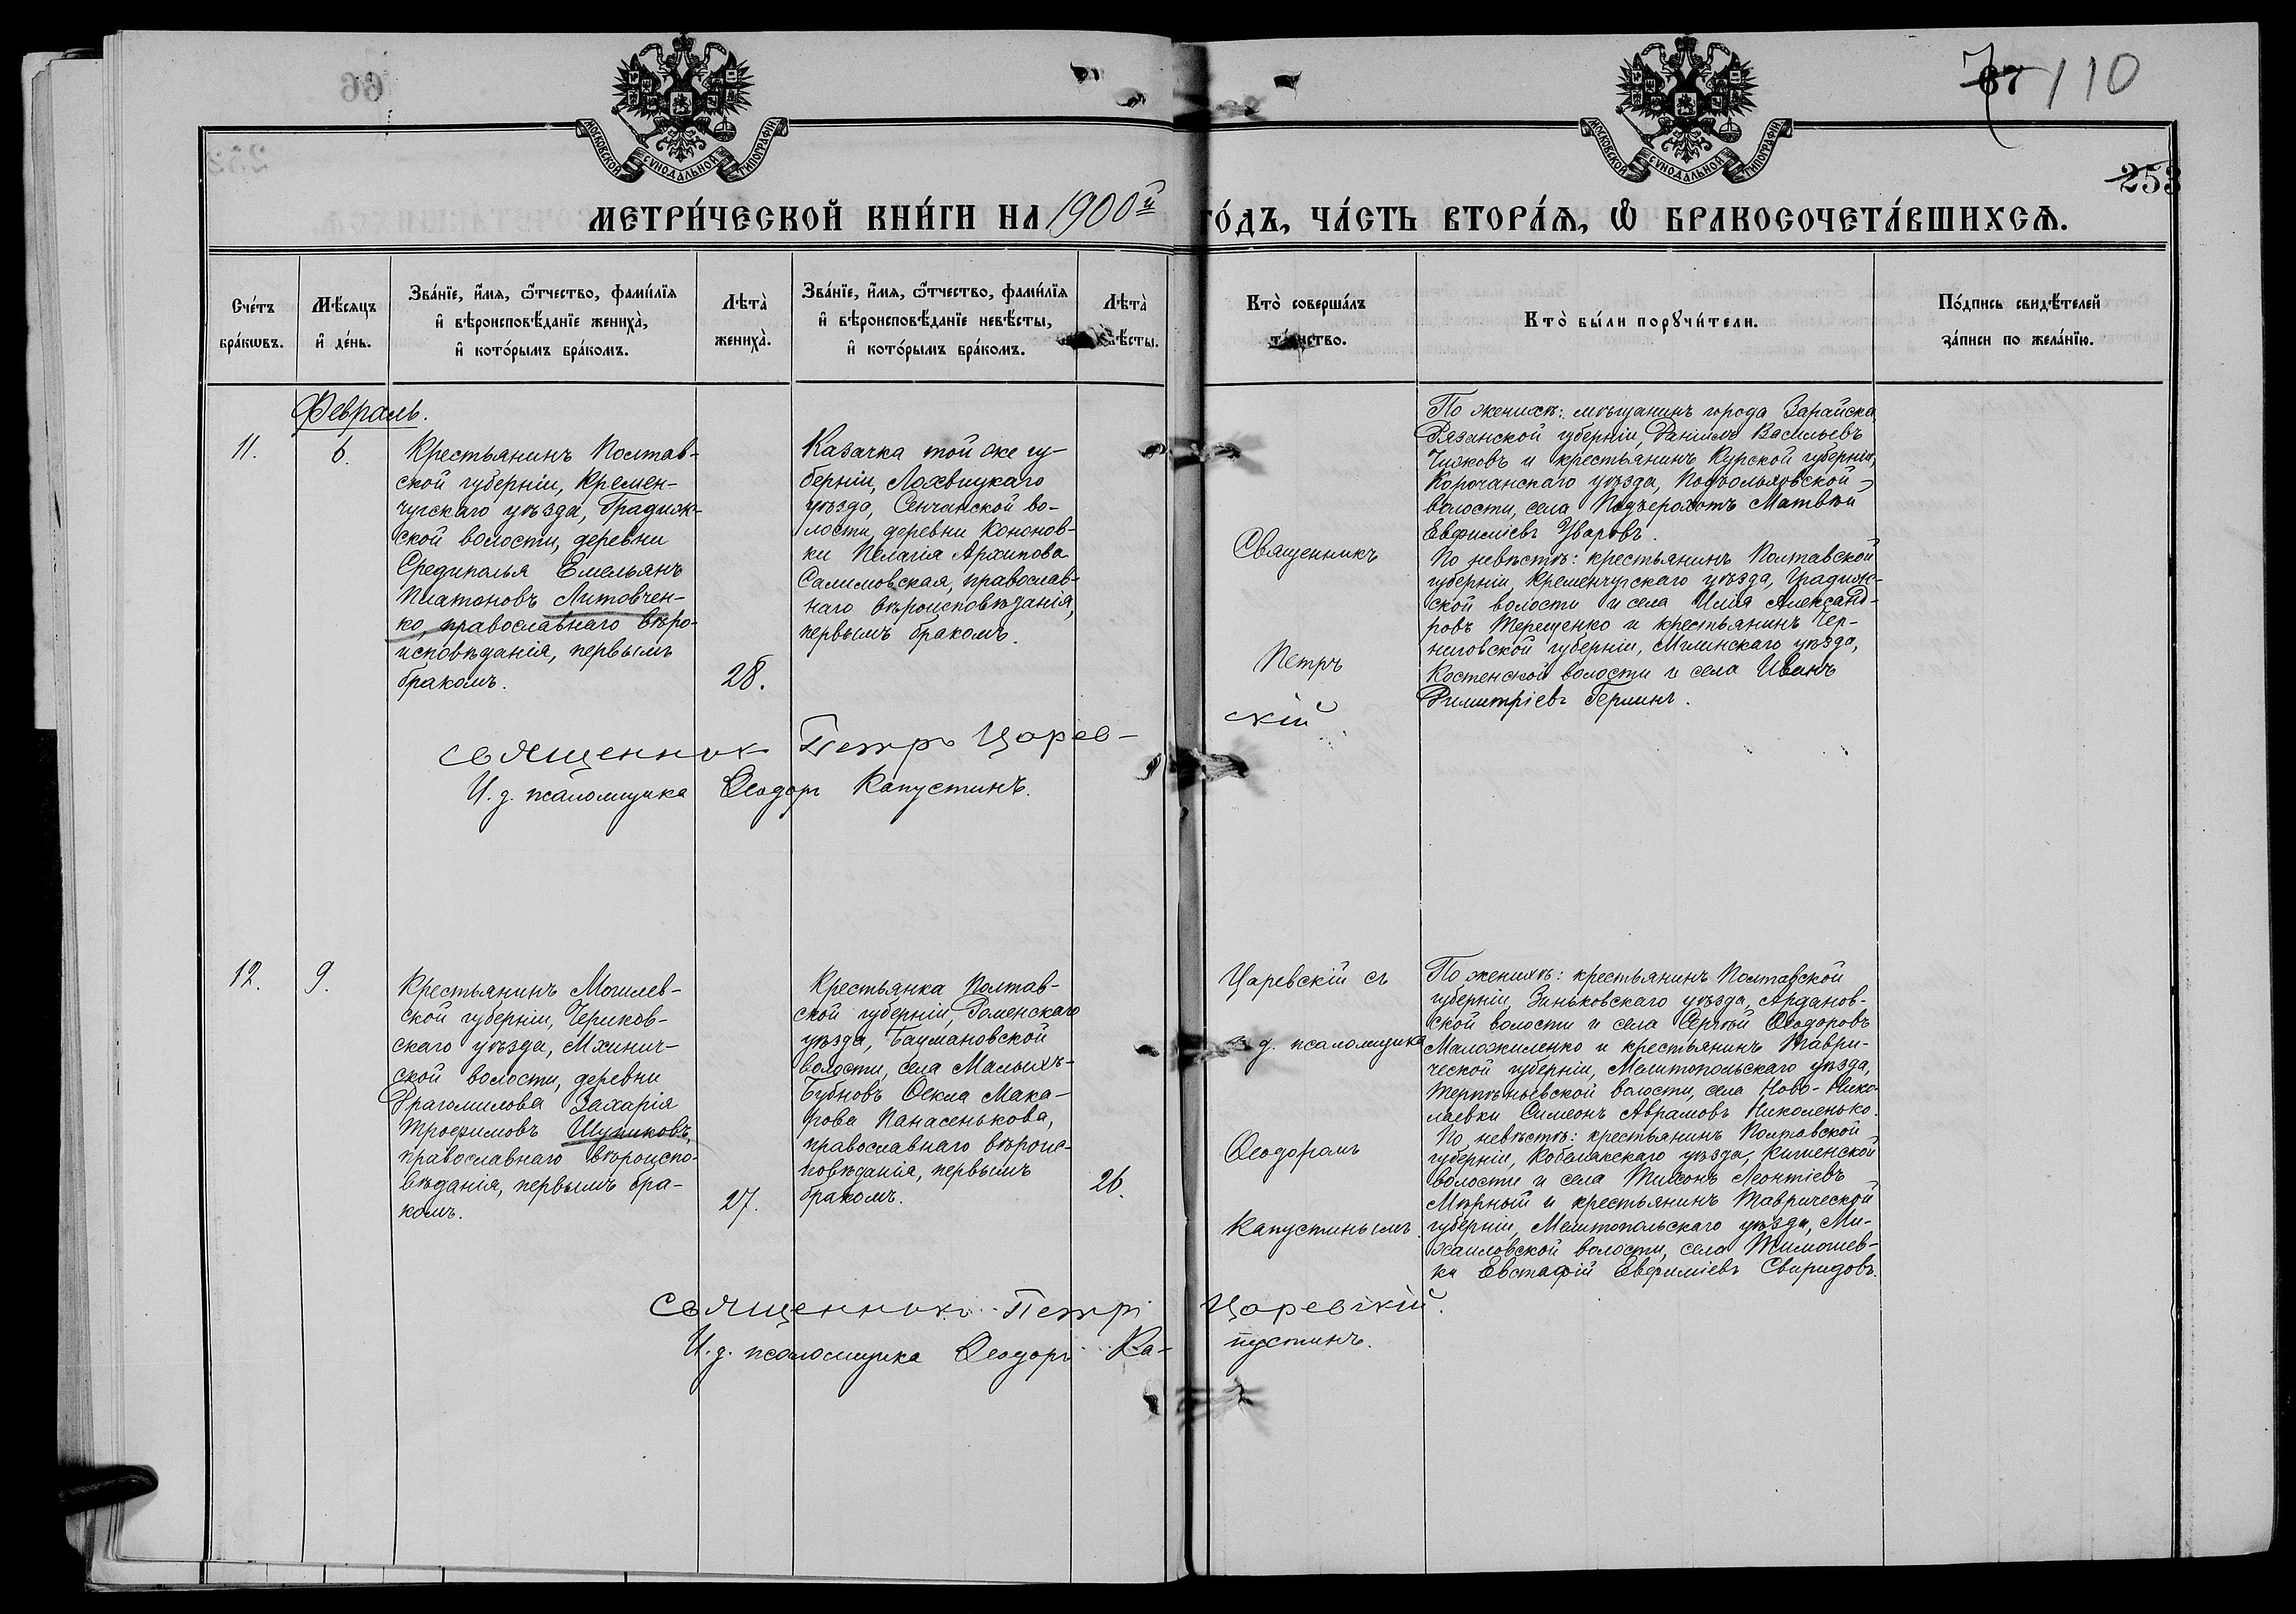 МОСКОВСКОЙ СѴНОДАЛЬНОЙ ТИПОГРАФІИ.
МОСКОВСКОЙ СѴНОДАЛЬНОЙ ТИПОГРАФІИ.
67 110
253
МЕТРИ́ЧЕСКОЙ КНИ́ГИ НА 1900й ГО́ДЪ, ЧА́СТЬ ВТОРА́Ѧ, Ѡ҆ БРАКОСОЧЕТА́ВШИХСѦ.
Сче́тъ
бра́кѡвъ.
Мѣ́сяцъ
и҆ де́нь.
Зва́нїе, и҆́мя, ѻ҆́тчество, фами́лїя
и҆ вѣроисповѣ́данїе жениха̀,
и҆ кото́рымъ бра́комъ.
Лѣта̀
жениха̀.
Зва́нїе, и҆́мя, ѻ҆́тчество, фами́лїя
и҆ вѣроисповѣ́данїе невѣ́сты,
и҆ кото́рымъ бра́комъ.
Лѣта̀
невѣ́сты.
Кто̀ соверша́лъ
та́инство.
Кто̀ бы́ли порꙋчи́тели.
По́дпись свидѣ́телей
за́писи по жела́нїю.
Февраль.
11.
6.
Крестьянинъ Полтав-
ской губерніи, Кремен-
чугскаго уѣзда, Градиж-
ской волости, деревни
Средиполья Емельянъ
Платоновъ Литовчен-
ко, православнаго вѣро-
исповѣданія, первымъ
бракомъ.
28.
Казачка той же гу-
берніи, Лохвицкаго
уѣзда, Сенчанской во-
лости, деревни Кононов-
ки Пелагія Архипова
Салимовская, православ-
наго вѣроисповѣданія,
первымъ бракомъ.
Священникъ
Петръ
По женихѣ: мѣщанинъ города Зарайска,
Рязанской губерніи, Даніилъ Васильевъ
Чижовъ и крестьянинъ Курской губерніи,
Корочанскаго уѣзда,
волости, села Матвѣй
Евфиміевъ Уваровъ.
По невѣстѣ: крестьянинъ Полтавской
губерніи, Кременчугскаго уѣзда, Градиж-
ской волости и села Илія Александ-
ровъ Терещенко и крестьянинъ Чер-
ниговской губерніи, Мглинскаго уѣзда,
Костенской волости и села Иванъ
Димитріевъ Герминъ.
священник Петръ Царев-
скій
И. д. псаломщика Ѳеодоръ Капустинъ.
12.
9.
Крестьянинъ Могилев-
ской губерніи, Чериков-
скаго уѣзда, Мхинич-
ской волости, деревни
Драгомилова Захарія
Трофимовъ Шупиковъ,
православнаго вѣроиспо-
вѣданія, первымъ бра-
комъ.
27.
Крестьянка Полтав-
ской губерніи, Роменскаго
уѣзда, Баумановской
волости, села Малыхъ-
Бубновъ Ѳекла Мака-
рова Панасенькова,
православнаго вѣроис-
повѣданія, первымъ
бракомъ.
26.
Царевскій съ
и. д. псаломщика
Ѳеодоромъ
Капустинымъ.
По женихѣ: крестьянинъ Полтавской
губерніи, Зиньковскаго уѣзда, Арданов-
ской волости и села Сергѣй Ѳеодоровъ
Маложиленко и крестьянинъ Таври-
ческой губерніи, Мелитопольскаго уѣзда,
Терпѣньевской волости, села Ново-Нико-
лаевки Симеонъ Аврамовъ Николенько.
По невѣстѣ: крестьянинъ Полтавской
губерніи, Кобелякскаго уѣзда, Кишенской
волости и села Тихонъ Леонтіевъ
Мѣрный и крестьянинъ Таврической
губерніи, Мелитопольскаго уѣзда, Ми-
хайловской волости, села Тимошев-
ки Евстафій Евфиміевъ Свиридовъ.
Священникъ Петръ Царевскій.
И. д. псаломщика Ѳеодоръ Ка-
пустинъ.